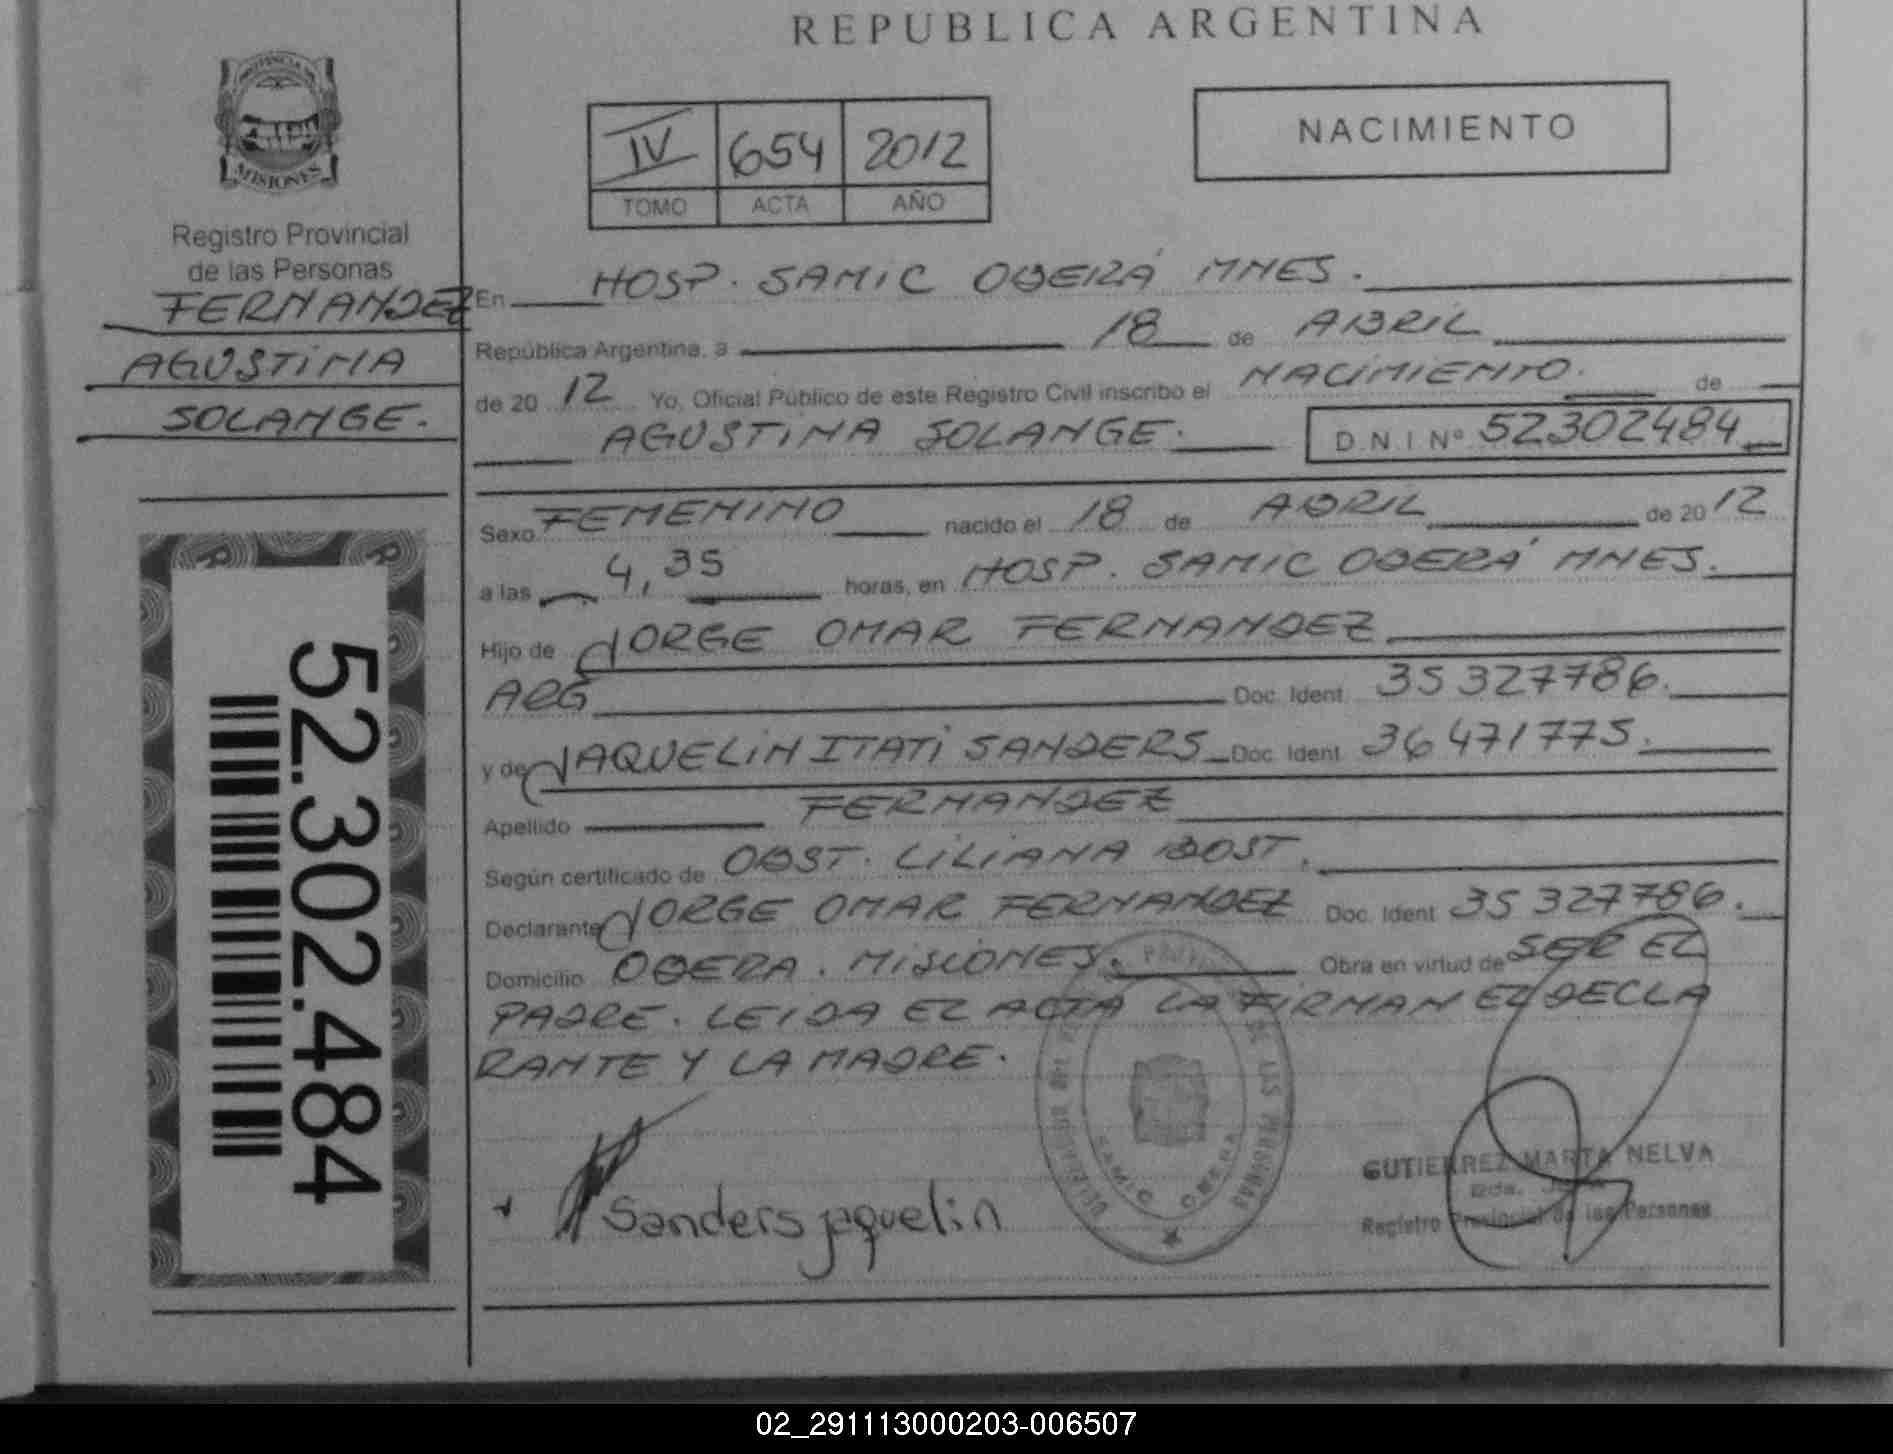 REPUBLICA ARGENTINA
MISIONES
Registro Provincial
de las Personas
FERNANDEZ
AGUSTINA
SOLANGE.
52.302.484
IV 654 2012
TOMO ACTA AÑO
NACIMIENTO
En HOSP. SAMIC OBERÁ MNES.
República Argentina, a 18 de ABRIL
de 2012 Yo, Oficial Público de este Registro Civil inscribo el NACIMIENTO. de
AGUSTINA SOLANGE. D.N.I Nº 52302484
Sexo FEMENINO nacido el 18 de ABRIL de 2012
a las 4,35 horas, en HOSP. SAMIC OBERÁ MNES.
Hijo de JORGE OMAR FERNANDEZ
ARG Doc. Ident. 35327786.
y de JAQUELIN ITATI SANDERS Doc. Ident. 36471775.
Apellido FERNANDEZ
Según certificado de OBST. LILIANA BOST.
Declarante JORGE OMAR FERNANDEZ Doc. Ident. 35327786.
Domicilio OBERA. MISIONES. Obra en virtud de SER EL
PADRE. LEIDA EL ACTA LA FIRMAN EL DECLA
RANTE Y LA MADRE.
Sanders jaquelin
DE LAS PERSONAS
SAMIC OBERA
GUTIERREZ MARTA NELVA
Registro Provincial de las Personas
02_291113000203-006507